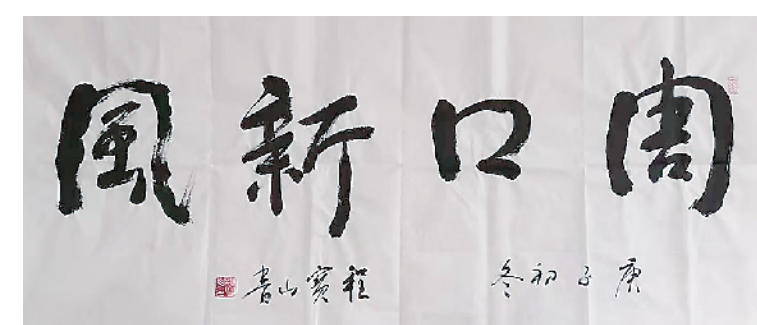 周口新風
庚子初冬
程寳山書